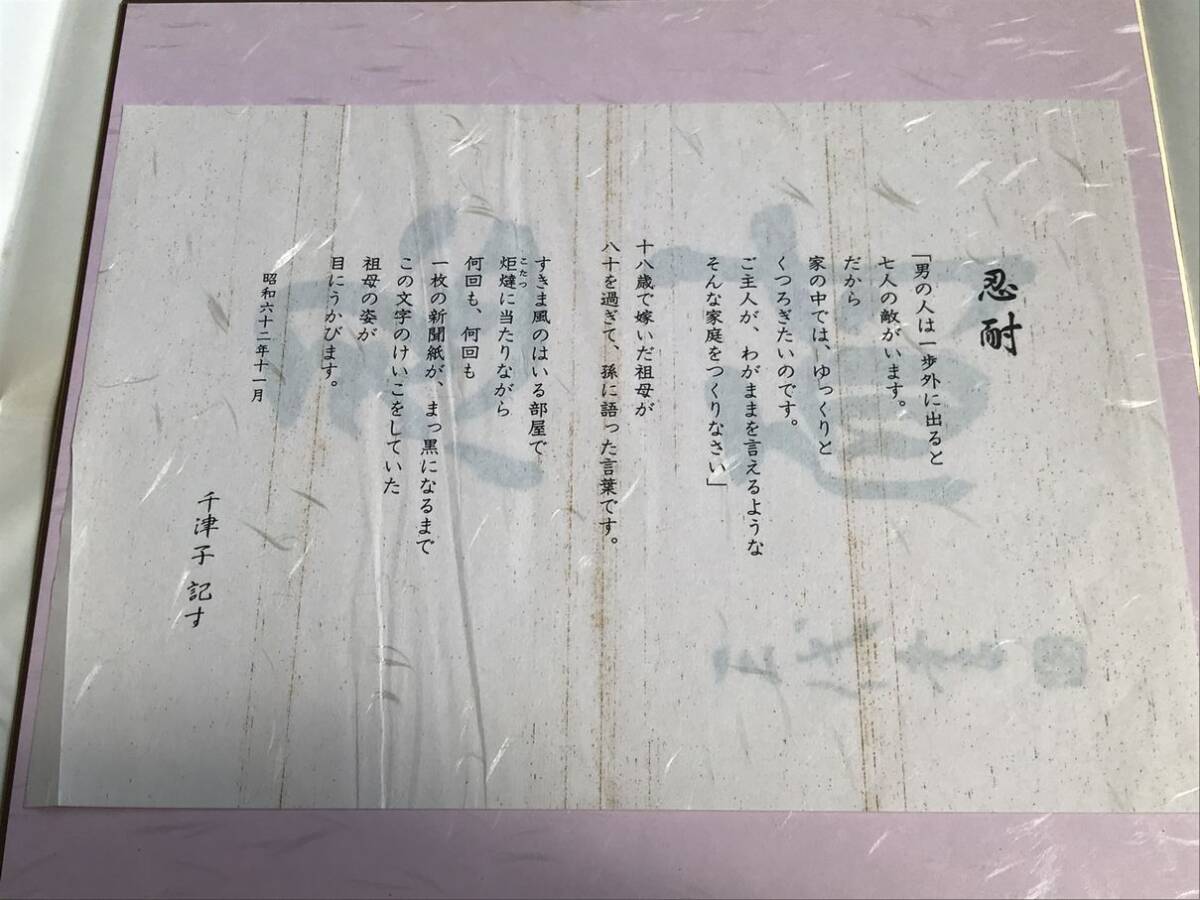 忍耐
「男の人は一歩外に出ると
七人の敵がいます。
だから
家の中では、ゆっくりと
くつろぎたいのです。
ご主人が、わがままを言えるような
そんな家庭をつくりなさい」
十八歳で嫁いだ祖母が
八十を過ぎて、孫に語った言葉です。
すきま風のはいる部屋で
炬燵に当たりながら
こたつ
何回も、何回も
一枚の新聞紙が、まっ黒になるまで
この文字のけいこをしていた
祖母の姿が
目にうかびます。
昭和六十二年十一月
千津子 記す